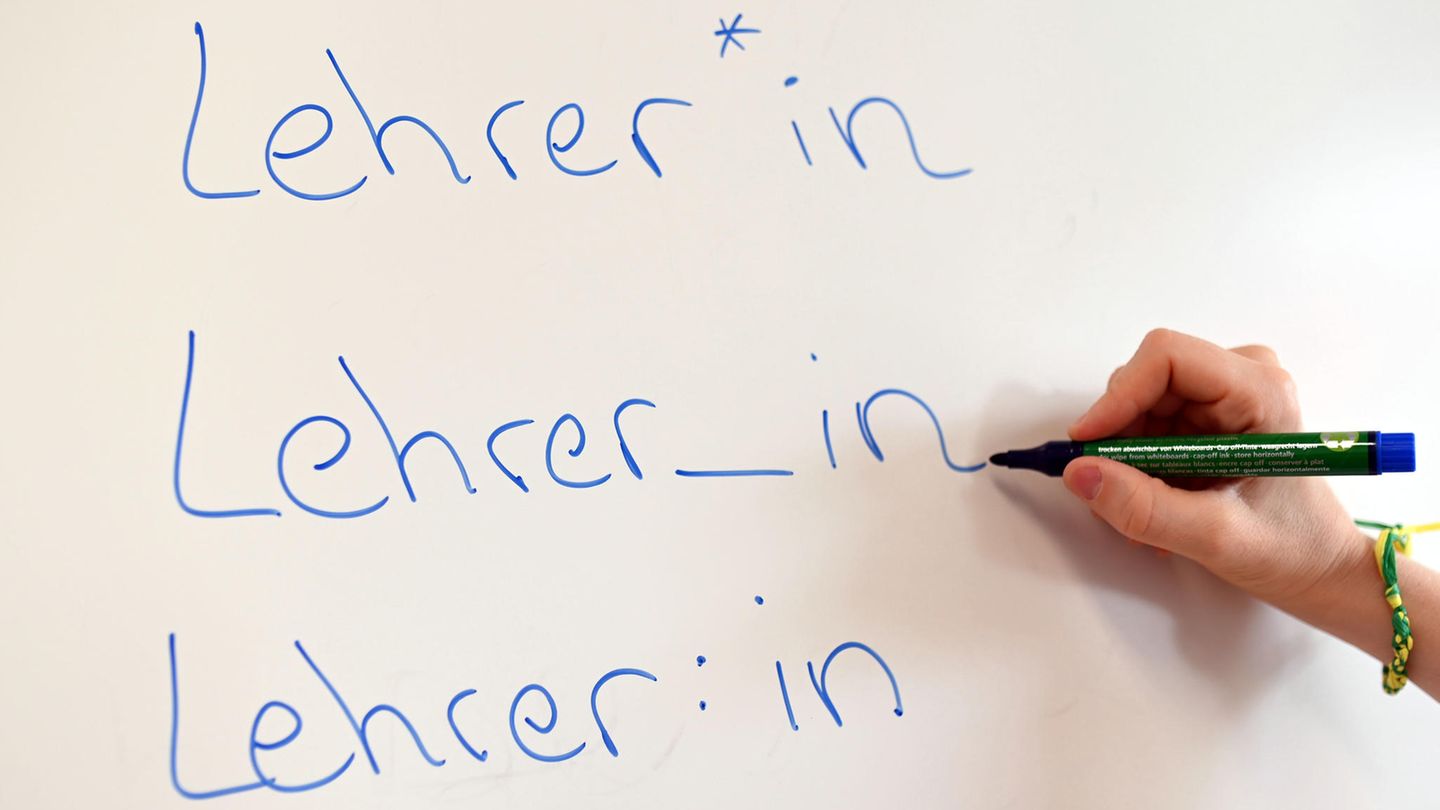 Lehrer*in
Lehrer_in
trocken abwischbar von Whiteboards · Cap off · Tinte waagrecht lagern
wipe from whiteboards · cap-off ink · store horizontally
sur tableaux blancs · encre cap off · conserver à plat
blancas · tinta cap off · guardar horizontalmente
Lehrer:in